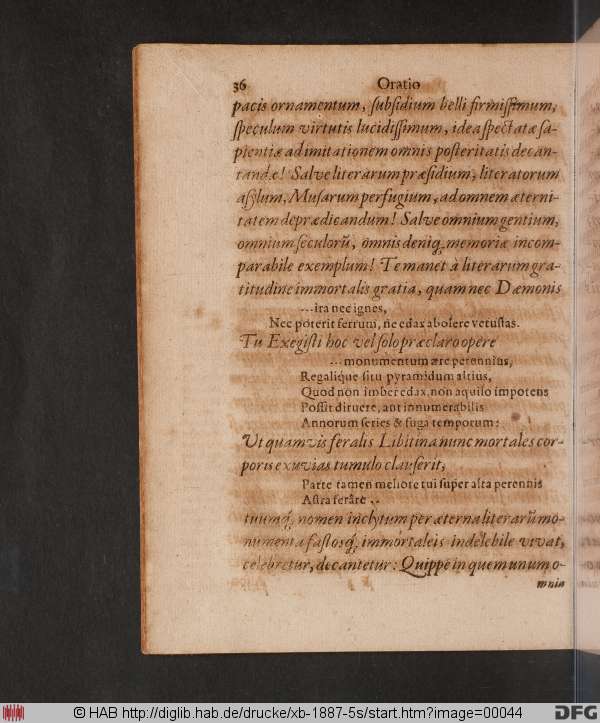 36 Oratio
pacis ornamentum, subsidium belli firmissimum,
speculum virtutis lucidissimum, idea spectatæ sa-
pientiæ ad imitationem omnis posteritatis decan-
tandæ! Salve literarum præsidium, literatorum
asylum, Musarum perfugium, ad omnem æterni-
tatem deprædicandum! Salve omnium gentium,
omnium seculorũ, omnis deniq́, memoriæ incom-
parabile exemplum! Te manet à literarum gra-
titudine immortalis gratia, quam nec Dæmonis
---ira nec ignes,
Nec poterit ferrum, ne edax abolere vetustas.
Tu Exegisti hoc vel solo præclaro opere
---monumentum ære perennius,
Regalique situ pyramidum altius,
Quod non imber edax, non aquilo impotens
Possit diruere, aut innumerabilis
Annorum series & fuga temporum:
Ut quamvis feralis Libitina nunc mortales cor-
poris exuvias tumulo clauserit,
Parte tamen meliore tui super alta perennis
Astra ferare --
tuumq́, nomen inclytum per æterna literarũ mo-
numenta fastosq́, immortaleis indelebile vivat,
celebretur, decantetur: Quippe in quem unum o-
mnia
© HAB http://diglib.hab.de/drucke/xb-1887-5s/start.htm?image=00044
DFG